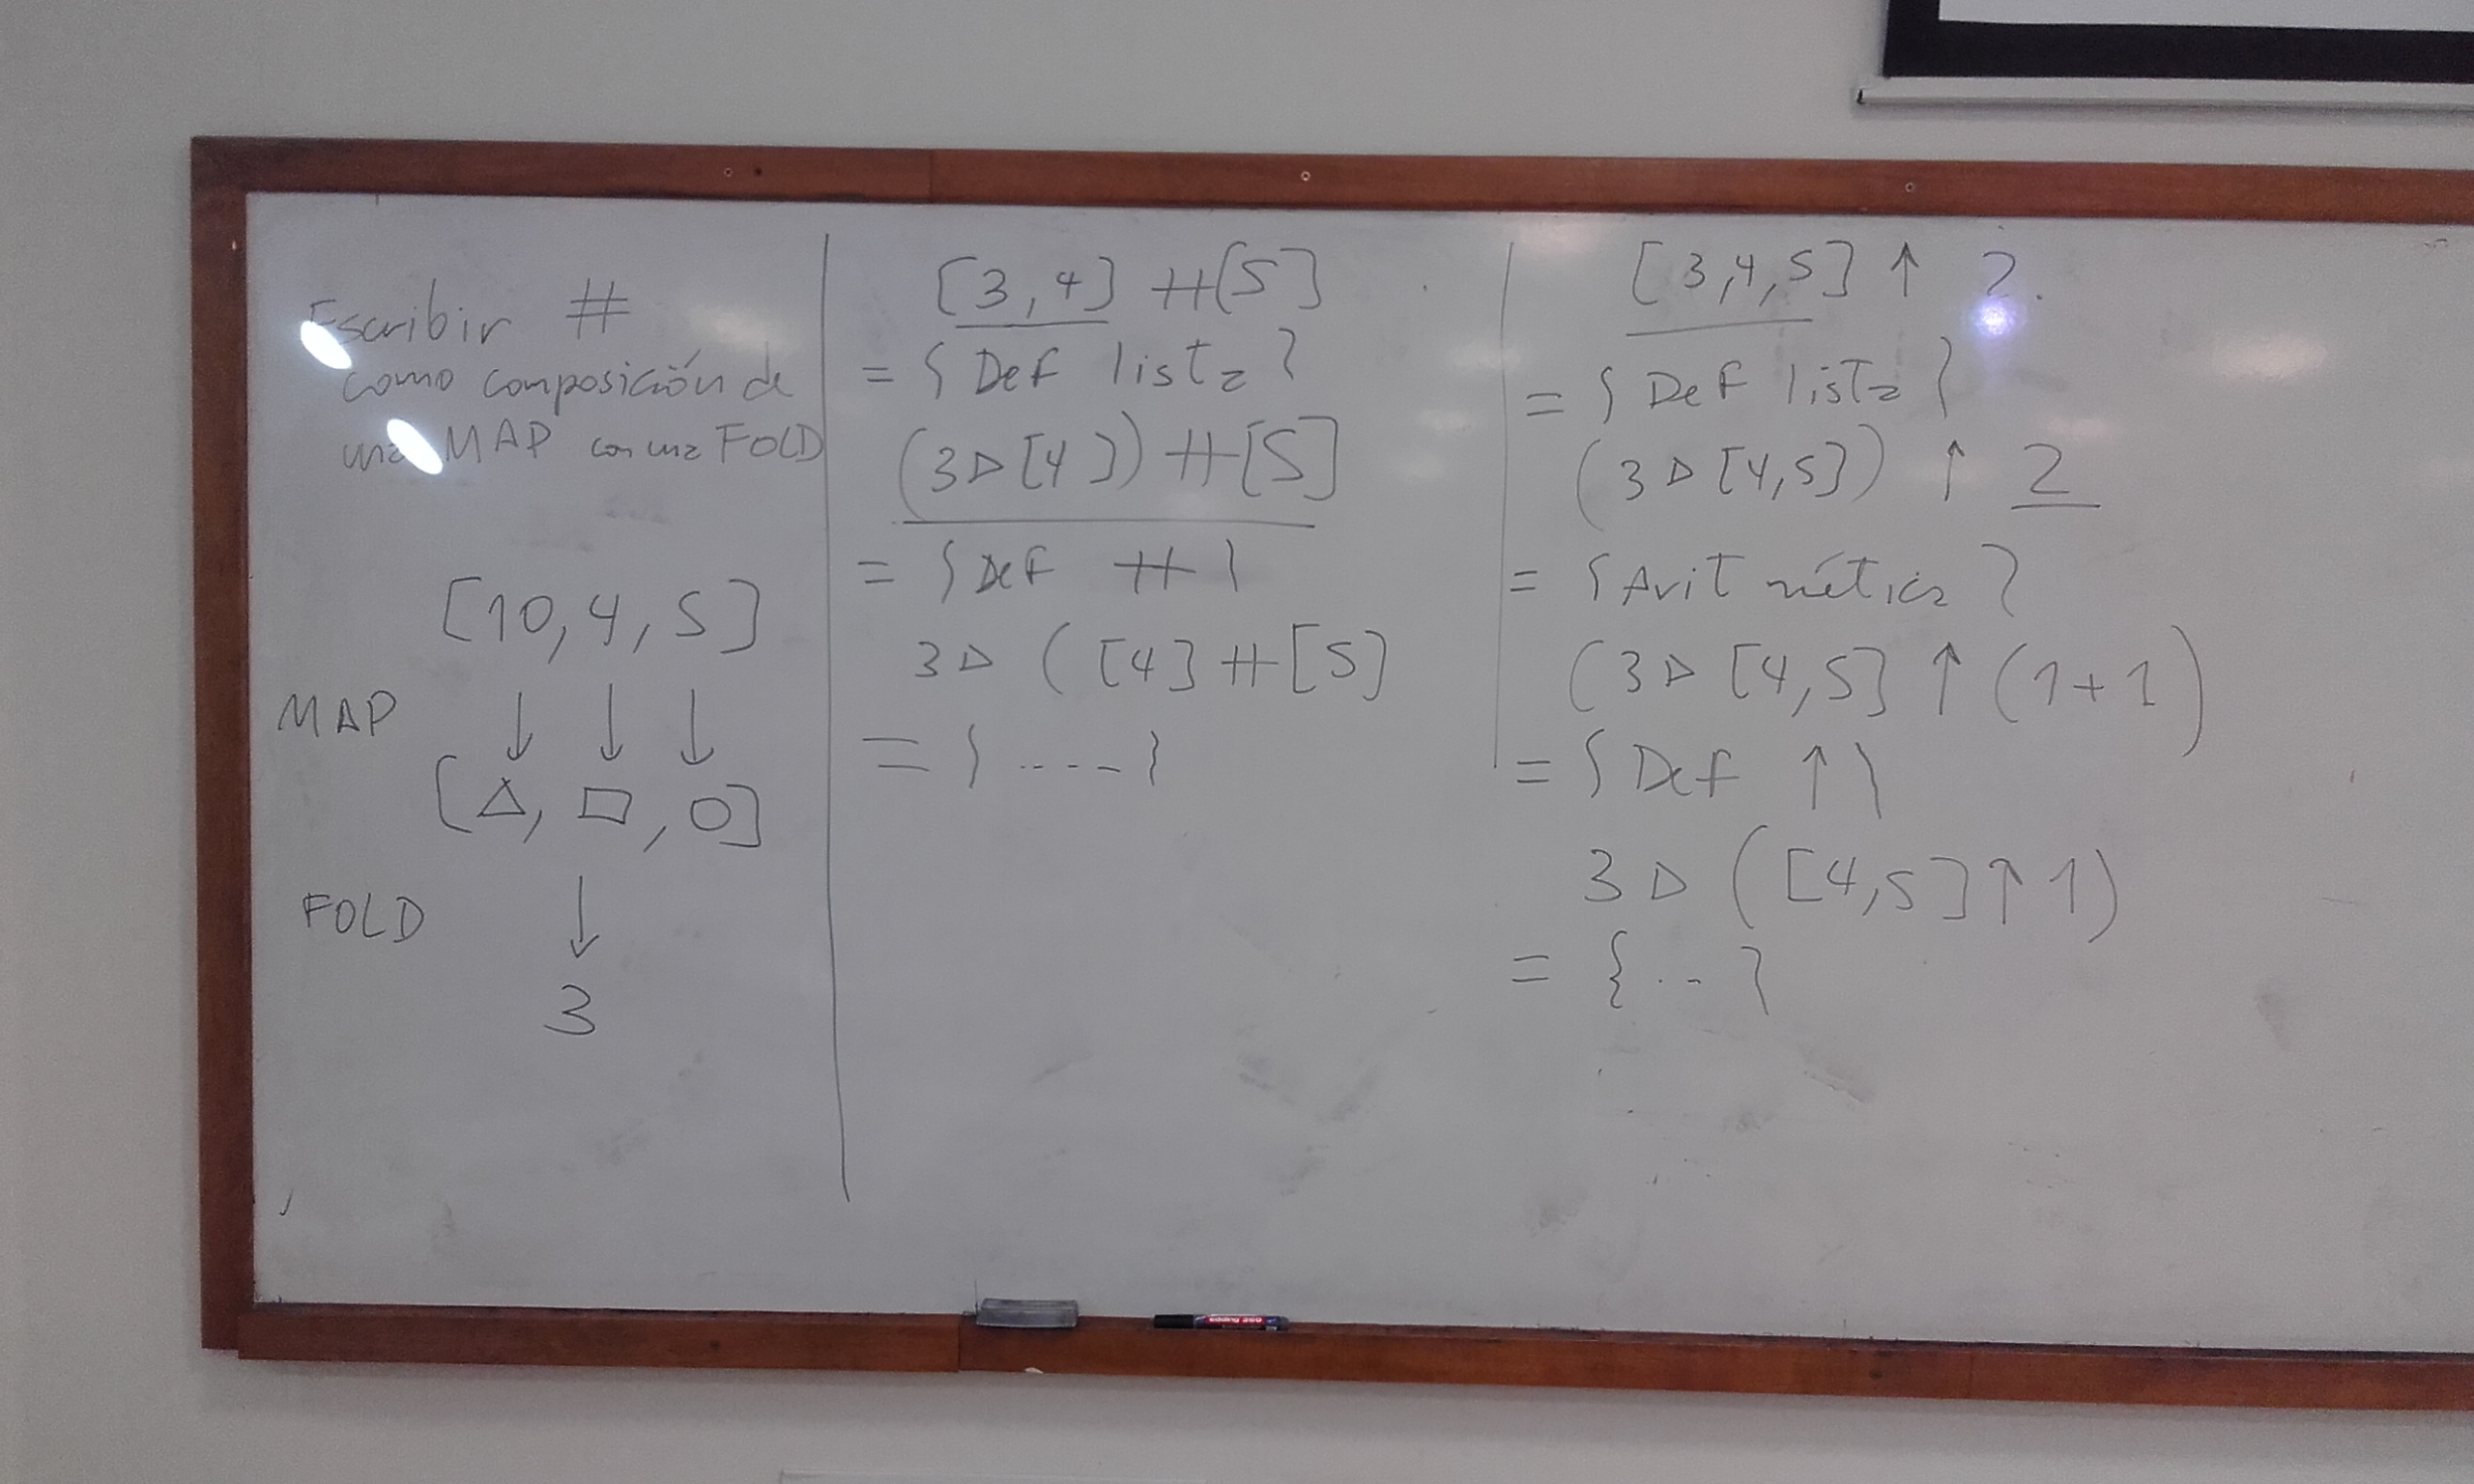 Escribir #
como composición de
una MAP con una FOLD
[10, 4, 5]
MAP ↓ ↓ ↓
[△, □, ○]
FOLD ↓
3
[3, 4] ++ [5]
= { Def lista }
(3 ▷ [4]) ++ [5]
= { Def ++ }
3 ▷ ( [4] ++ [5]
= { .... }
[3,4,5] ↑ 2
= { Def lista }
(3 ▷ [4,5]) ↑ 2
= { Aritmética }
(3 ▷ [4,5] ↑ (1+1)
= { Def ↑ }
3 ▷ ( [4,5] ↑ 1)
= { .. }